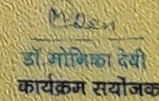 डॉ. मोनिका देवी
कार्यक्रम सयोंजक